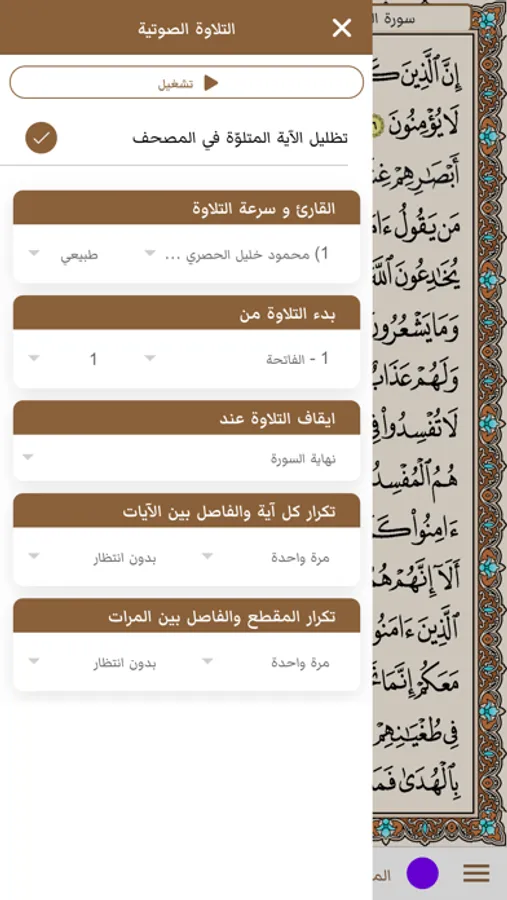 التلاوة الصوتية
تشغيل
تظليل الآية المتلوّة في المصحف
القارئ و سرعة التلاوة
1) محمود خليل الحصري ...
طبيعي
بدء التلاوة من
1 - الفاتحة
1
ايقاف التلاوة عند
نهاية السورة
تكرار كل آية والفاصل بين الآيات
مرة واحدة
بدون انتظار
تكرار المقطع والفاصل بين المرات
مرة واحدة
بدون انتظار
سورة
إِنَّ ٱلَّذِينَ
لَا يُؤْمِنُونَ
أَبْصَٰرِهِمْ
مَن يَقُولُ
يُخَٰدِعُونَ ٱللَّهَ
وَمَا يَشْعُرُونَ
وَلَهُمْ عَذَابٌ
لَا تُفْسِدُوا۟ فِي
هُمُ ٱلْمُفْسِدُ
ءَامِنُوا۟
أَلَآ إِنَّهُمْ هُمُ
ٱلَّذِينَ ءَامَنُوا
مَعَكُمْ إِنَّمَا
فِي طُغْيَٰنِهِمْ
بِٱلْهُدَىٰ فَمَا